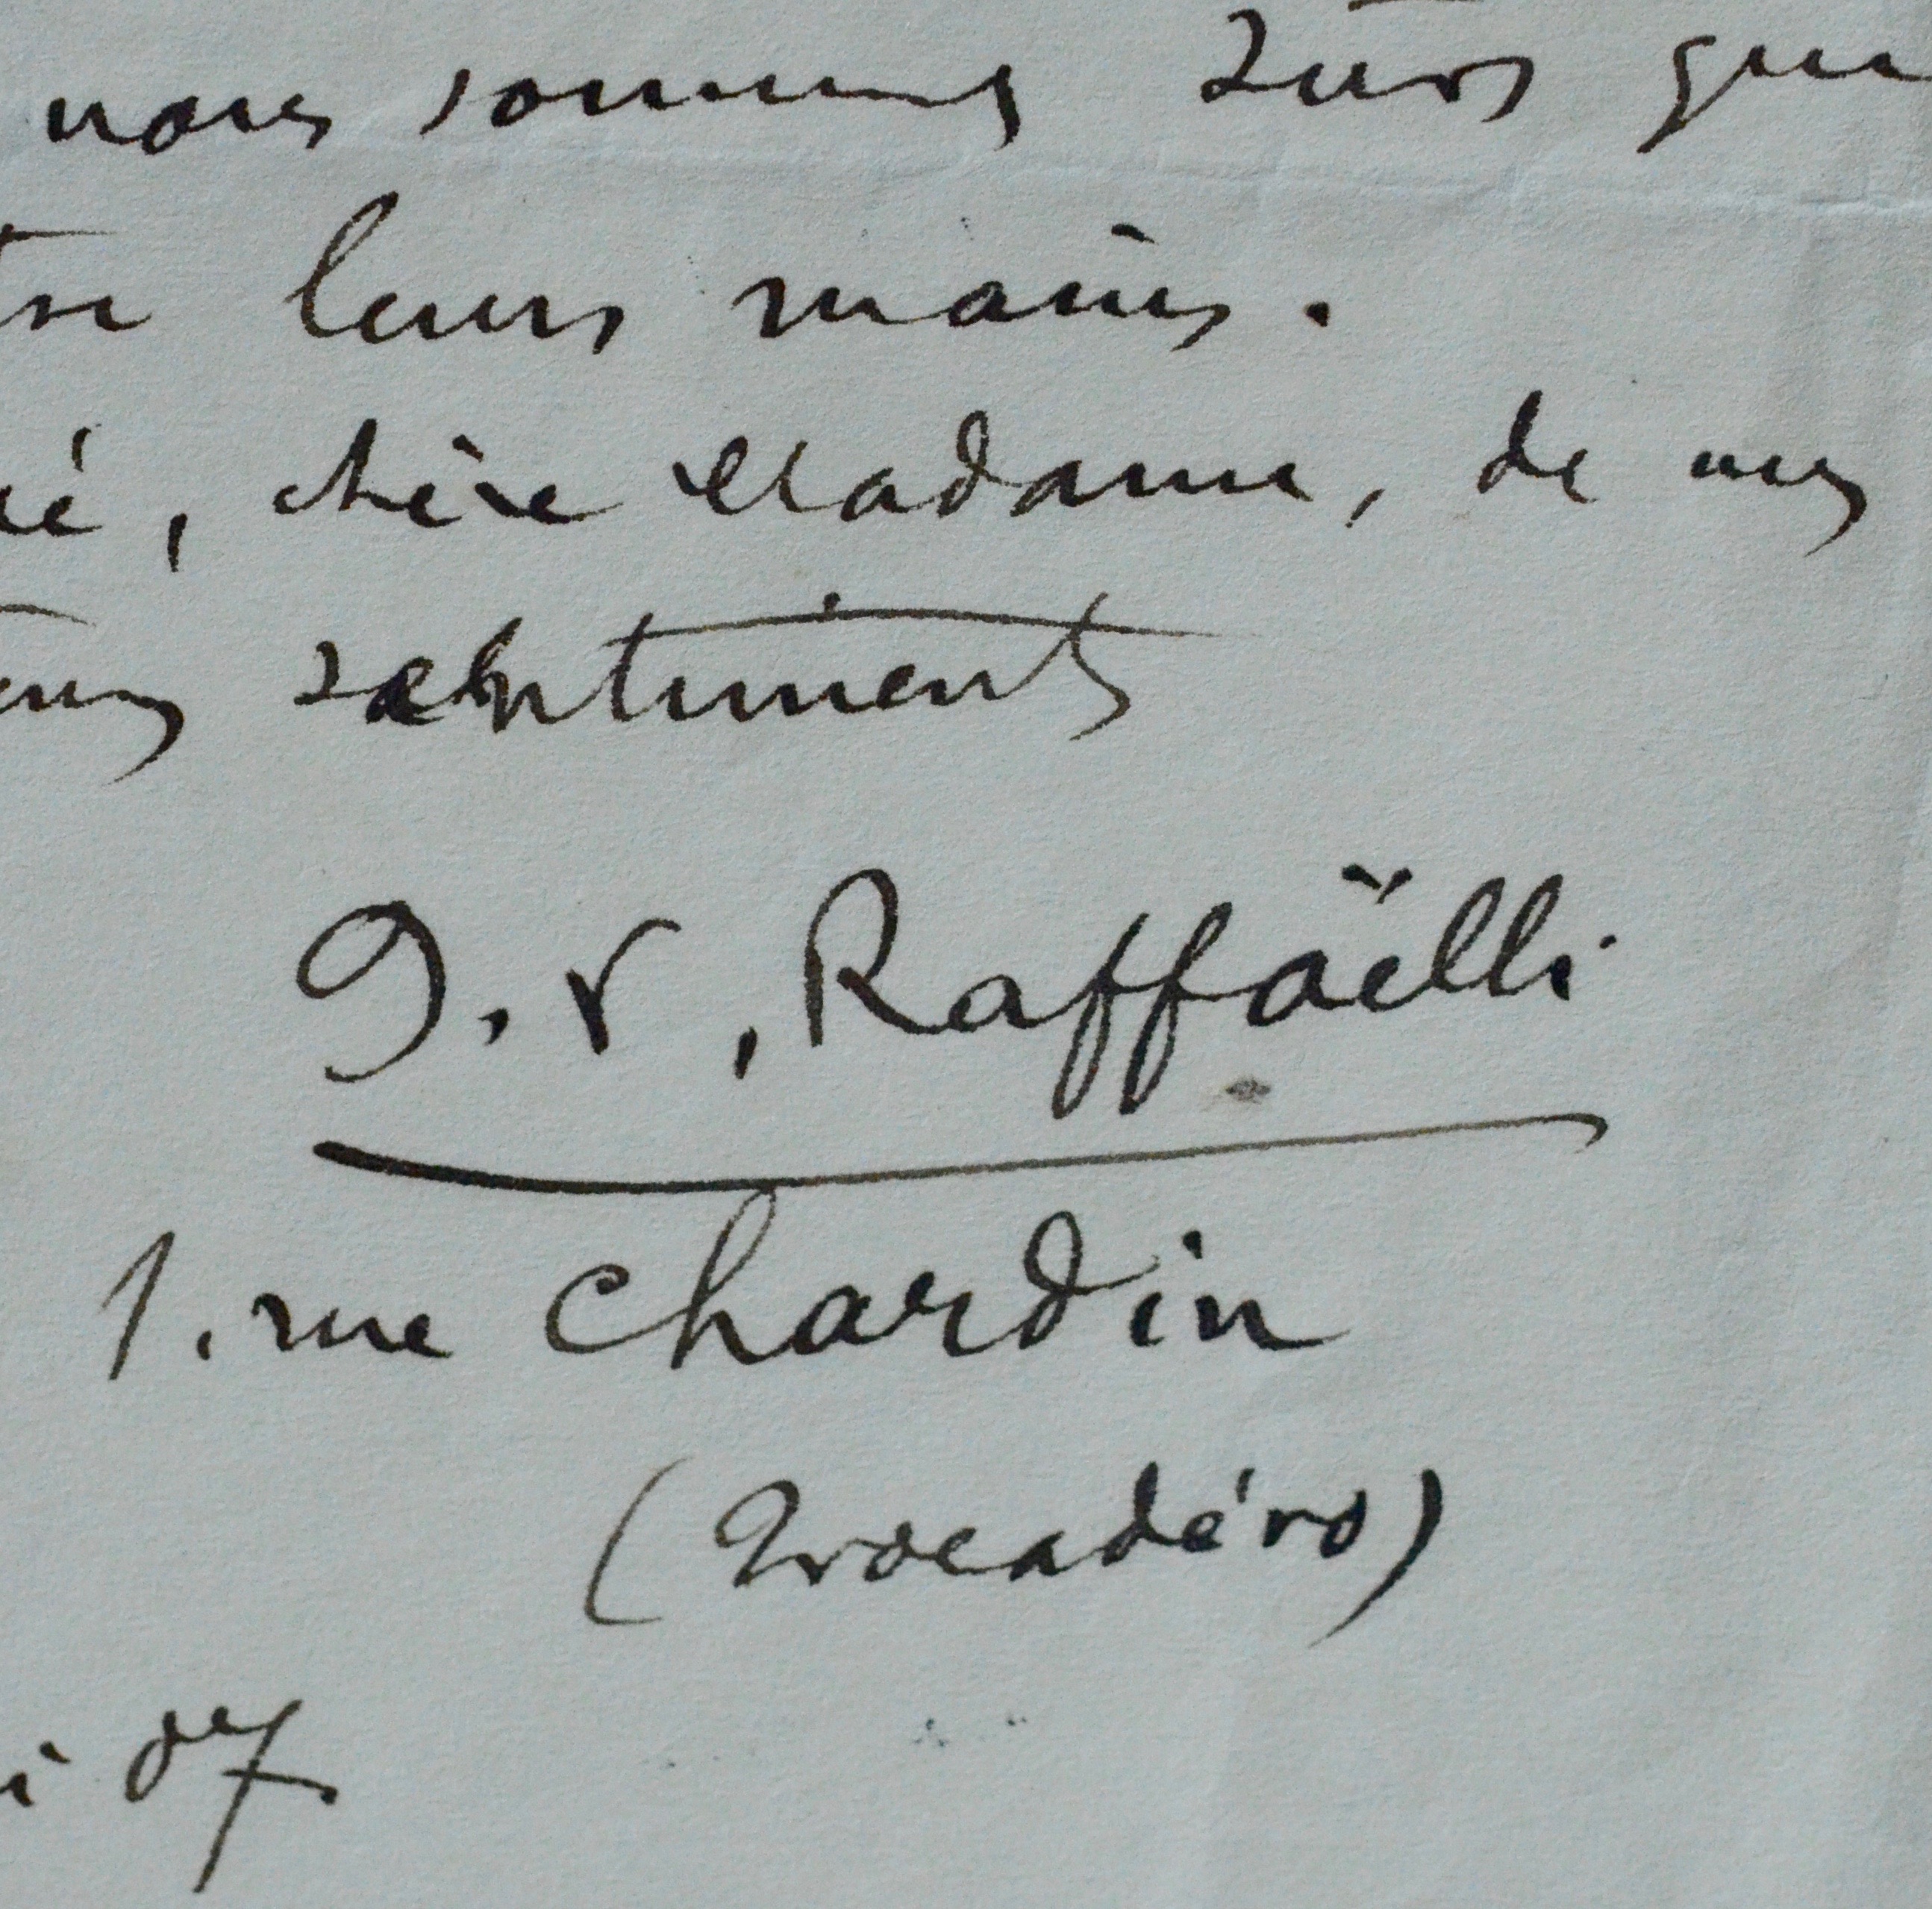 nous sommes sûrs que
tre leurs mains.
ié, chère Madame, de mes
sentiments
J. F. Raffaëlli
1. rue Chardin
(Trocadéro)
i 07